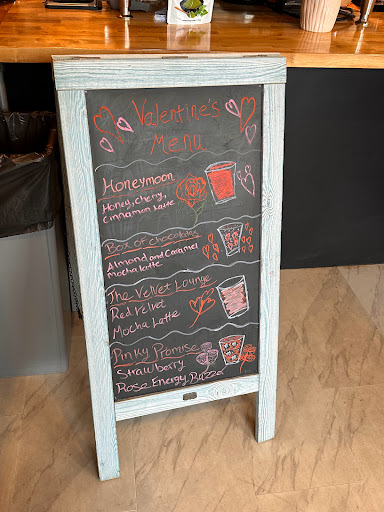 Valentine's
Menu
Honeymoon
Honey, cherry,
cinnamon latte
Box of chocolates
Almond and Caramel
mocha latte
The Velvet Lounge
Red Velvet
Mocha Latte
Pinky Promise
Strawberry
Rose Energy Buzz